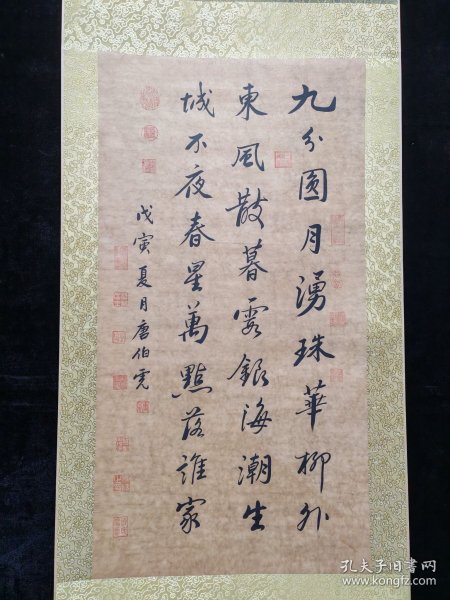 九分圓月湧珠華柳外
東風散暮霞銀海潮生
城不夜春星萬點落誰家
戊寅夏月唐伯虎
孔夫子旧书网
www.kongfz.com